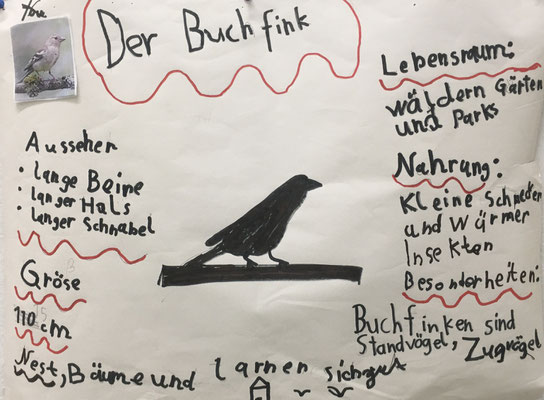 Der Buchfink
Aussehen
• lange Beine
• langer Hals
• langer Schnabel
Gröse
110 cm
Nest, Bäume und
larnen sichgut
Lebensraum:
wäldern Gärten
und Parks
Nahrung:
Kleine Schnecken
und Wärmer
Insekten
Besonderheiten:
Buchfinken sind
Standvögel, Zugvögel